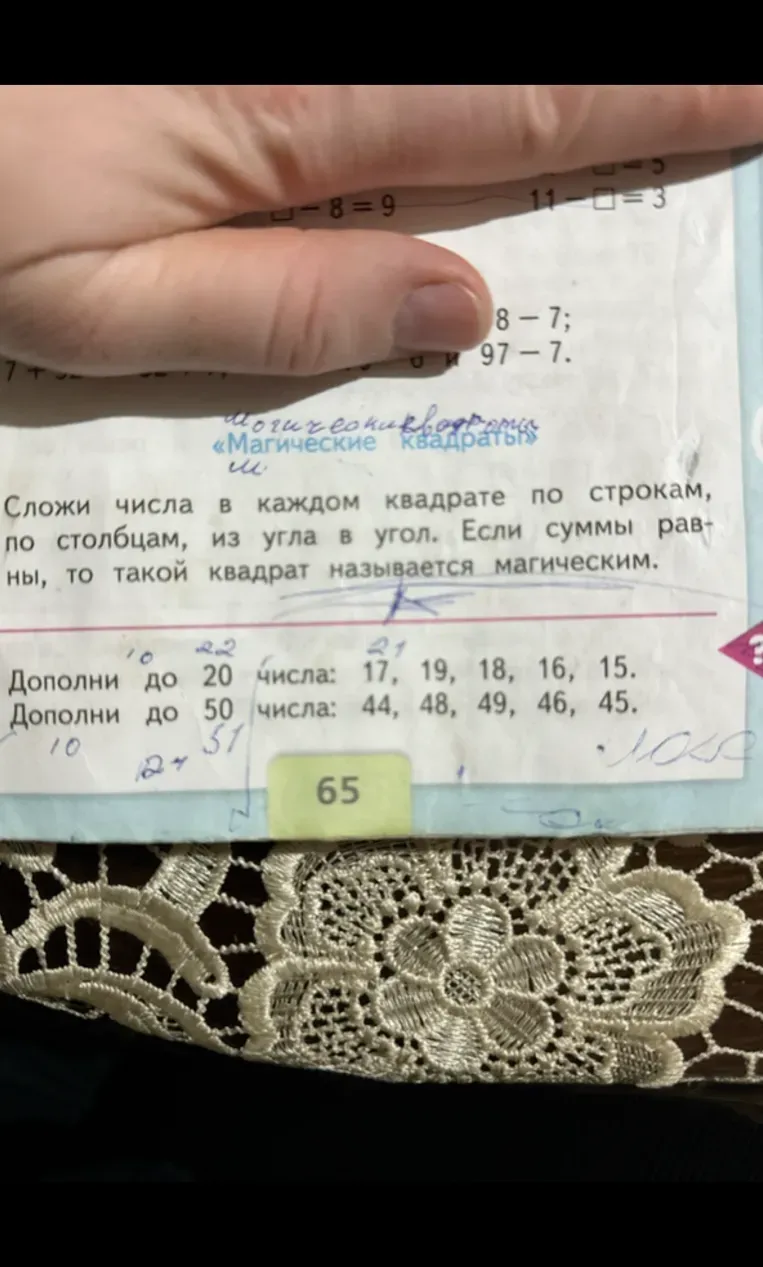 □ = 5
□ − 8 = 9 11 − □ = 3
8 − 7;
6 и 97 − 7.
«Магические квадраты»
Сложи числа в каждом квадрате по строкам,
по столбцам, из угла в угол. Если суммы рав-
ны, то такой квадрат называется магическим.
10 22 21
Дополни до 20 числа: 17, 19, 18, 16, 15.
Дополни до 50 числа: 44, 48, 49, 46, 45.
10 51
65
?